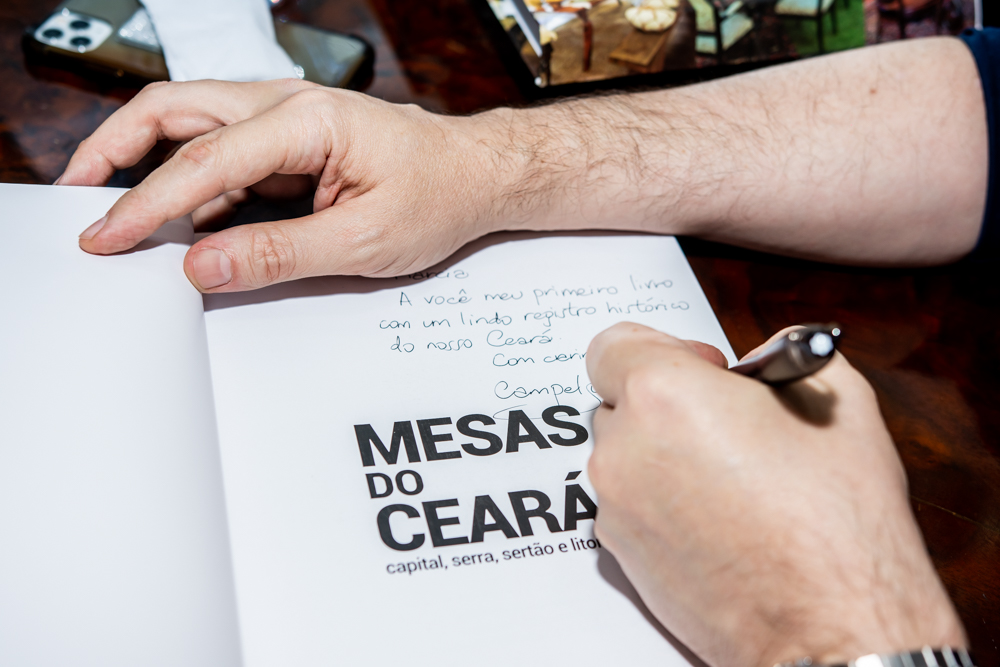 Márcia
A você meu primeiro livro
com um lindo registro histórico
do nosso Ceará.
Com
MESAS
DO
CEARÁ
capital, serra, sertão e